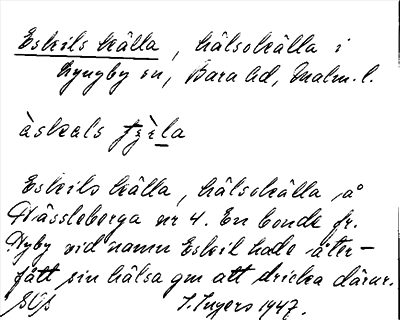 Eskils källa, hälsokälla i
Lyngby sn, Bara hd, Malm. l.
Eskils källa, hälsokälla å
Nässleberga nr 4. En bonde fr.
Nyby vid namn Eskil hade åter-
fått sin hälsa gm att dricka därur.
I. Ingers 1947.